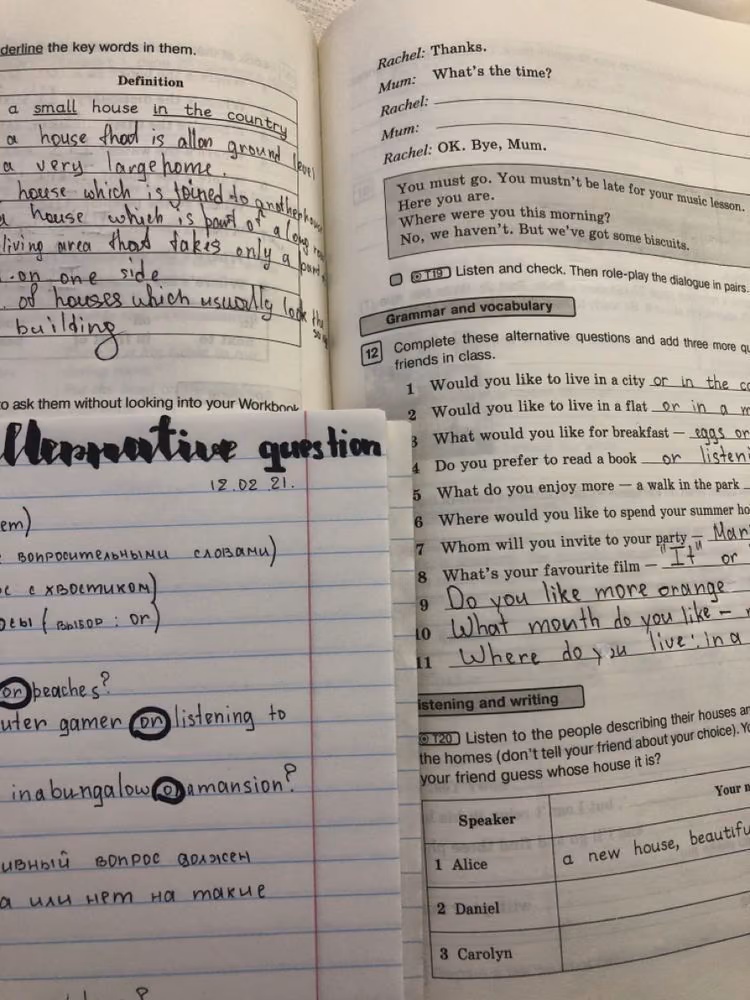 derline the key words in them.
Definition
a small house in the country
a house that is all on ground level
a very large home.
house which is joined to another house
a house which is part of a long
living area that takes only a part
on one side
of houses which usually look the
building
to ask them without looking into your Workbook
Rachel: Thanks.
Mum: What's the time?
Rachel:
Mum:
Rachel: OK. Bye, Mum.
You must go. You mustn't be late for your music lesson.
Here you are.
Where were you this morning?
No, we haven't. But we've got some biscuits.
T19 Listen and check. Then role-play the dialogue in pairs.
Grammar and vocabulary
12 Complete these alternative questions and add three more qu
friends in class.
1 Would you like to live in a city or in the co
2 Would you like to live in a flat or in a m
3 What would you like for breakfast — eggs or
4 Do you prefer to read a book or listeni
5 What do you enjoy more — a walk in the park
6 Where would you like to spend your summer ho
7 Whom will you invite to your party — Mar
8 What's your favourite film — "It" or
9 Do you like more orange
10 What month do you like –
11 Where do you live: in a
istening and writing
T20 Listen to the people describing their houses an
the homes (don't tell your friend about your choice). Yo
your friend guess whose house it is?
Speaker Your n
1 Alice a new house, beautifu
2 Daniel
3 Carolyn
question
12.02 21.
ем)
с вопросительными словами)
с с хвостиком)
осы (выбор : or)
or peaches?
uter gamer or listening to
in a bungalow or a mansion?
ивный вопрос должен
а или нет на такие
?